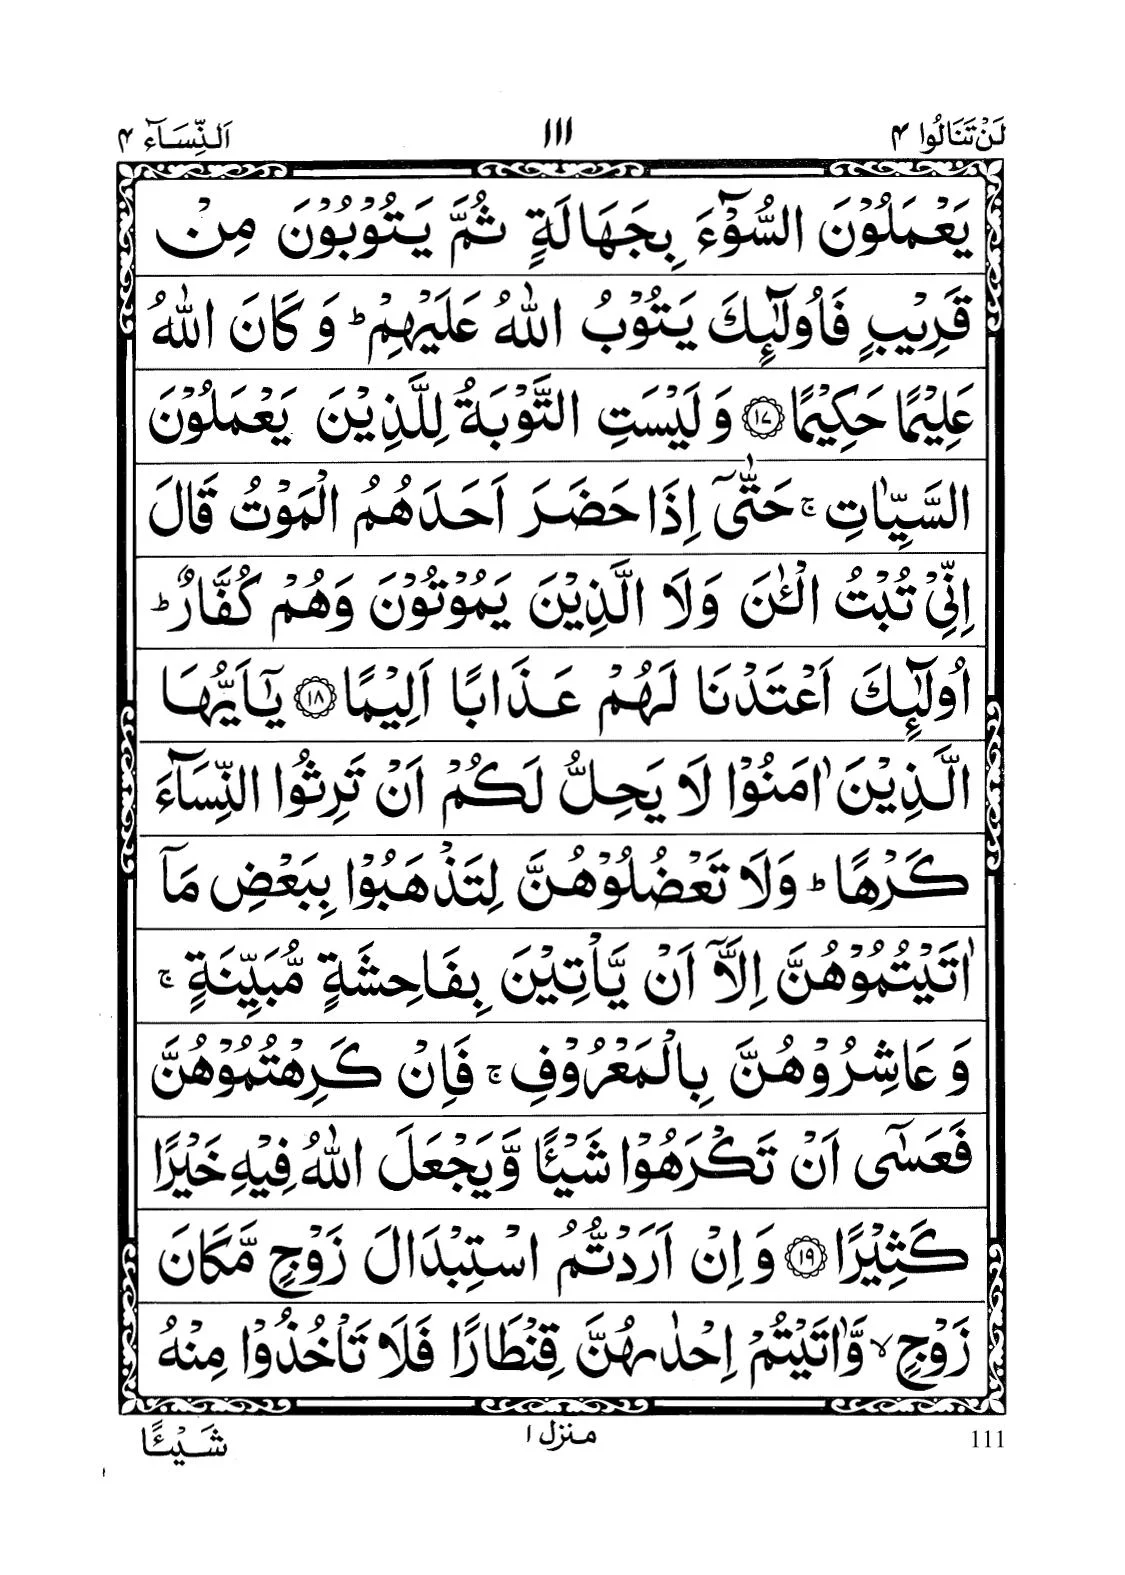 لَنْ تَنَالُوا ٤
١١١
اَلنِّسَآء ٤
يَعْمَلُوْنَ السُّوْٓءَ بِجَهَالَةٍ ثُمَّ يَتُوْبُوْنَ مِنْ
قَرِيْبٍ فَاُولٰٓئِكَ يَتُوْبُ اللّٰهُ عَلَيْهِمْ ؕ وَ كَانَ اللّٰهُ
عَلِيْمًا حَكِيْمًا ۝١٧ وَ لَيْسَتِ التَّوْبَةُ لِلَّذِيْنَ يَعْمَلُوْنَ
السَّيِّاٰتِ ۚ حَتّٰۤى اِذَا حَضَرَ اَحَدَهُمُ الْمَوْتُ قَالَ
اِنِّيْ تُبْتُ الْـٰٔنَ وَلَا الَّذِيْنَ يَمُوْتُوْنَ وَهُمْ كُفَّارٌ ؕ
اُولٰٓئِكَ اَعْتَدْنَا لَهُمْ عَذَابًا اَلِيْمًا ۝١٨ يٰۤاَيُّهَا
الَّذِيْنَ اٰمَنُوْا لَا يَحِلُّ لَكُمْ اَنْ تَرِثُوا النِّسَآءَ
كَرْهًا ؕ وَلَا تَعْضُلُوْهُنَّ لِتَذْهَبُوْا بِبَعْضِ مَاۤ
اٰتَيْتُمُوْهُنَّ اِلَّاۤ اَنْ يَّاْتِيْنَ بِفَاحِشَةٍ مُّبَيِّنَةٍ ۚ
وَ عَاشِرُوْهُنَّ بِالْمَعْرُوْفِ ۚ فَاِنْ كَرِهْتُمُوْهُنَّ
فَعَسٰۤى اَنْ تَكْرَهُوْا شَيْـًٔا وَّيَجْعَلَ اللّٰهُ فِيْهِ خَيْرًا
كَثِيْرًا ۝١٩ وَ اِنْ اَرَدْتُّمُ اسْتِبْدَالَ زَوْجٍ مَّكَانَ
زَوْجٍ ۙ وَّاٰتَيْتُمْ اِحْدٰىهُنَّ قِنْطَارًا فَلَا تَاْخُذُوْا مِنْهُ
شَيْـًٔا
منزل ١
111